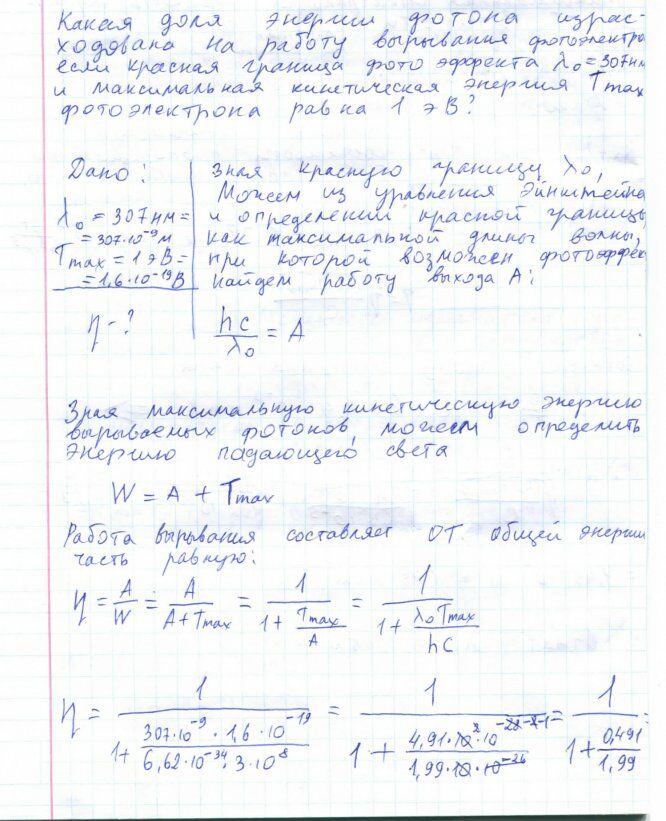 Какая доля энергии фотона израс-
ходована на работу вырывания фотоэлектро
если красная граница фото эффекта λ₀ = 307нм
и максимальная кинетическая энергия Tmax
фотоэлектрона равна 1 эВ?
Дано:
λ₀ = 307нм =
= 307·10⁻⁹м
Tmax = 1 эВ =
= 1,6·10⁻¹⁹В
η - ?
Зная красную границу λ₀,
Можем из уравнения Эйнштейна
и определении красной границы
как максимальной длины волны,
при которой возможен фотоэффек
найдем работу выхода A:
hc/λ₀ = A
Зная максимальную кинетическую энергию
вырываемых фотонов, можем определить
энергию падающего света
W = A + Tmax
Работа вырывания составляет от общей энергии
часть равную:
η = A/W = A/(A+Tmax) = 1/(1 + Tmax/A) = 1/(1 + λ₀Tmax/hc)
η = 1/(1 + (307·10⁻⁹ · 1,6·10⁻¹⁹)/(6,62·10⁻³⁴ · 3·10⁸)) = 1/(1 + 4,91·10²·10⁻²⁸⁻¹/1,99·10·10⁻²⁶) = 1/(1 + 0,491/1,99) =